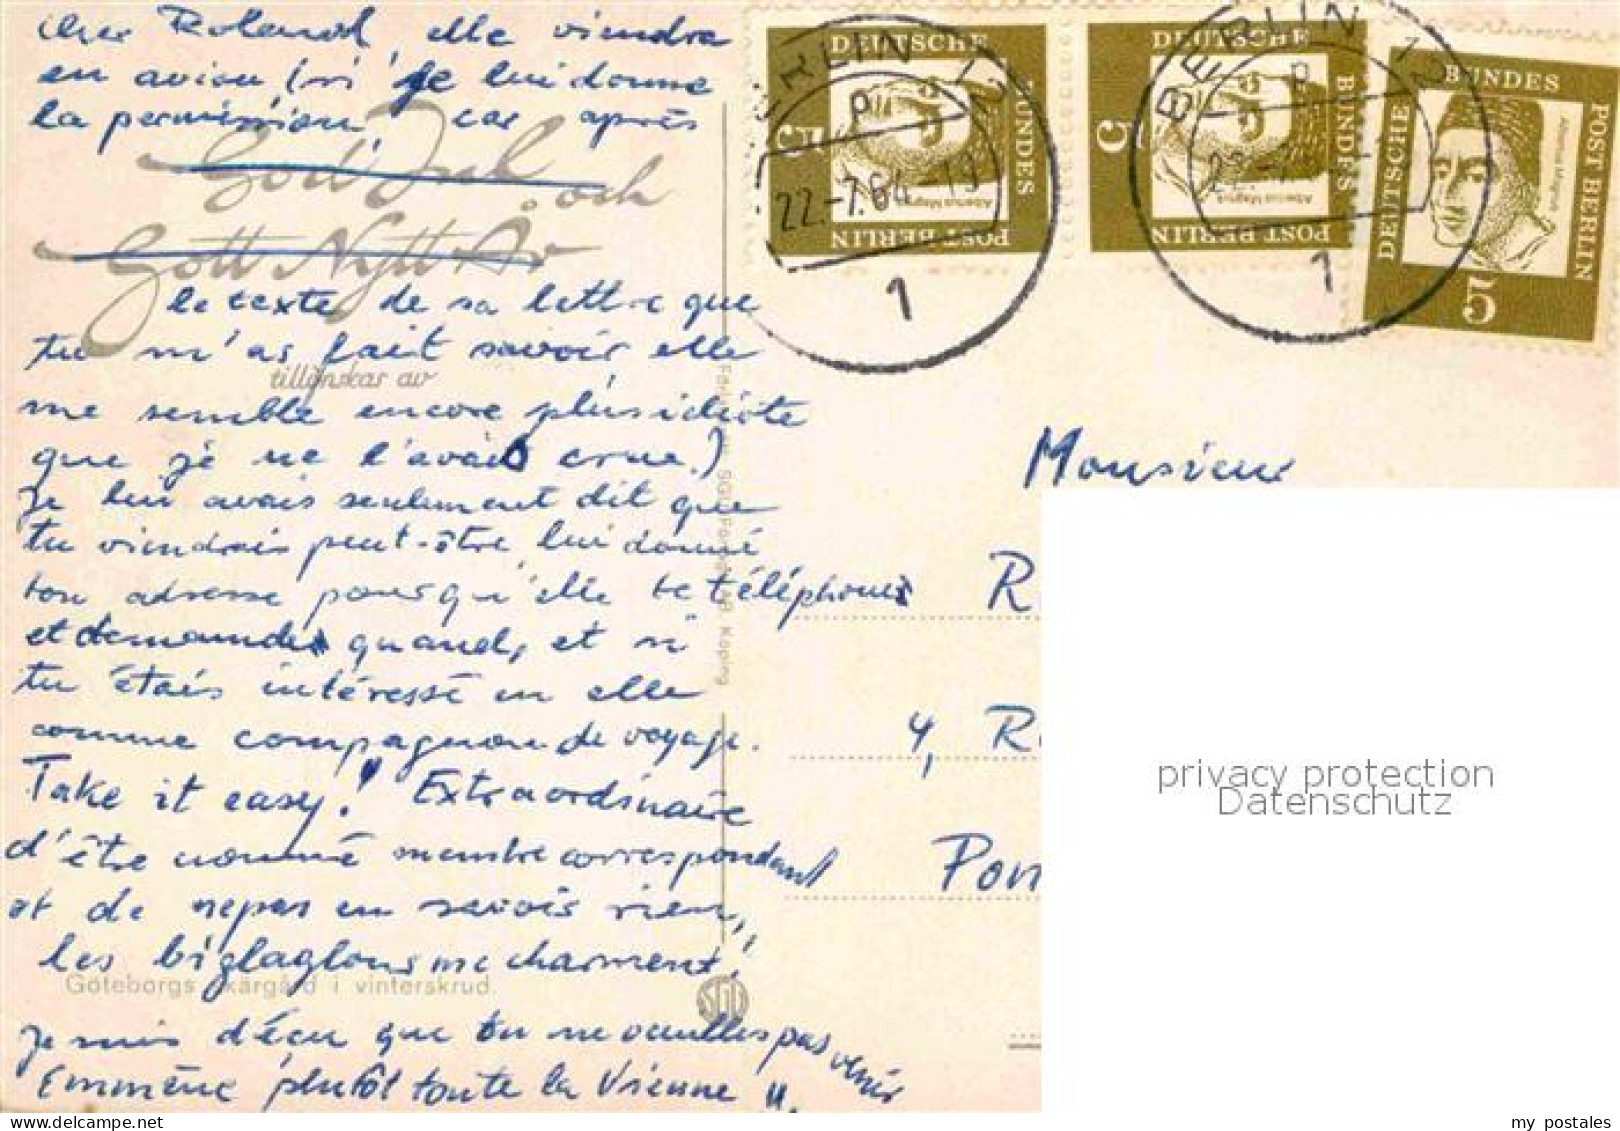 cher Roland, elle viendra
en avion (si je lui donne
la permission, car après
God Jul och
Gott Nytt År
le texte de sa lettre que
tu m'as fait savoir elle
tillönskar av
me semble encore plus idiote
que je ne l'avais crue.)
Je lui avais seulement dit que
tu viendrais peut-être, lui donné
ton adresse pour qu'elle te téléphone
et demande quand, et si
tu étais intéressé en elle
comme compagnon de voyage.
Take it easy! Extraordinaire
d'être nommé membre correspondant
et de ne pas en savoir rien,
les biglaglous me charment!
Göteborgs skärgård i vinterskrud.
Je suis déçu que tu ne veuilles pas venir
Emmène plutôt toute la Vienne
SGD
Köping
DEUTSCHE BUNDESPOST BERLIN
5
Albertus Magnus
DEUTSCHE BUNDESPOST BERLIN
5
Albertus Magnus
DEUTSCHE BUNDESPOST BERLIN
5
Albertus Magnus
BERLIN 12
p
22.-7.64-19
1
BERLIN 12
p
22.-7.
1
Monsieur
R
4, R
Pon
privacy protection
Datenschutz
my postales